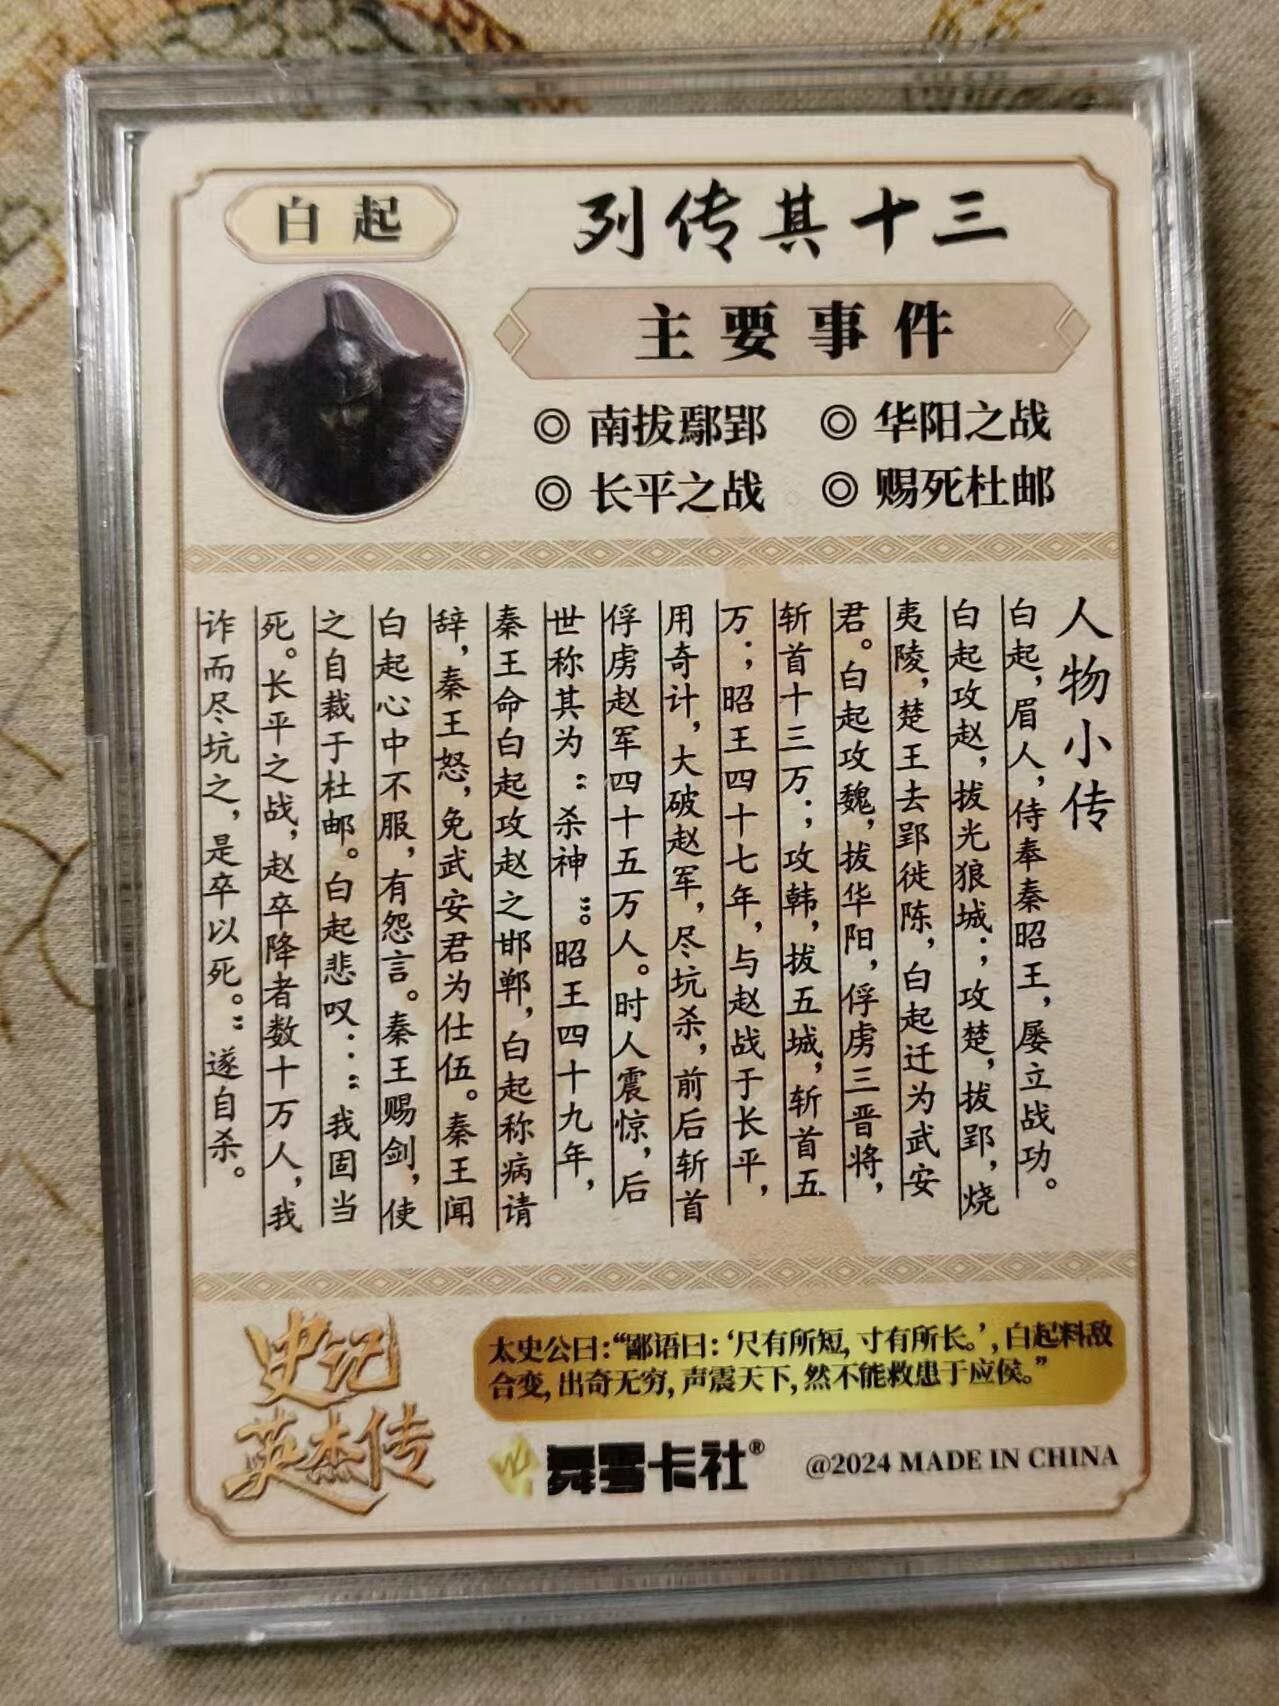 白起
列传其十三
主要事件
◎ 南拔鄢郢 ◎ 华阳之战
◎ 长平之战 ◎ 赐死杜邮
人物小传
白起，眉人，侍奉秦昭王，屡立战功。
白起攻赵，拔光狼城；攻楚，拔郢，烧
夷陵，楚王去郢徙陈，白起迁为武安
君。白起攻魏，拔华阳，俘虏三晋将，
斩首十三万；攻韩，拔五城，斩首五
万；昭王四十七年，与赵战于长平，
用奇计，大破赵军，尽坑杀，前后斩首
俘虏赵军四十五万人。时人震惊，后
世称其为“杀神”。昭王四十九年，
秦王命白起攻赵之邯郸，白起称病请
辞，秦王怒，免武安君为仕伍。秦王闻
白起心中不服，有怨言。秦王赐剑，使
之自裁于杜邮。白起悲叹：“我固当
死。长平之战，赵卒降者数十万人，我
诈而尽坑之，是卒以死。”遂自杀。
史记
英杰传
太史公曰：“鄙语曰：‘尺有所短，寸有所长。’，白起料敌
合变，出奇无穷，声震天下，然不能救患于应侯。”
舞雩卡社®
@2024 MADE IN CHINA